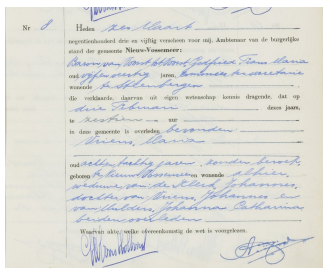 Nr 8 Heden zes Maart
negentienhonderd drie en vijftig verscheen voor mij, Ambtenaar van de burgerlijke
stand der gemeente Nieuw-Vossemeer:
Godfried Frans Maria
oud jaren,
wonende te Steenbergen
die verklaarde, daarvan uit eigen wetenschap kennis dragende, dat op
drie Februari dezes jaars,
te zestien uur
in deze gemeente is overleden bevonden
Vriens, Maria
oud acht en tachtig jaren zonder beroep,
geboren te Nieuw-Vossemeer en wonende alhier,
weduwe van: de Klerk, Johannes,
dochter van: Vriens, Johannes en
van Mulders, Johanna Catharina
beiden overleden
Waarvan akte, welke overeenkomstig de wet is voorgelezen.